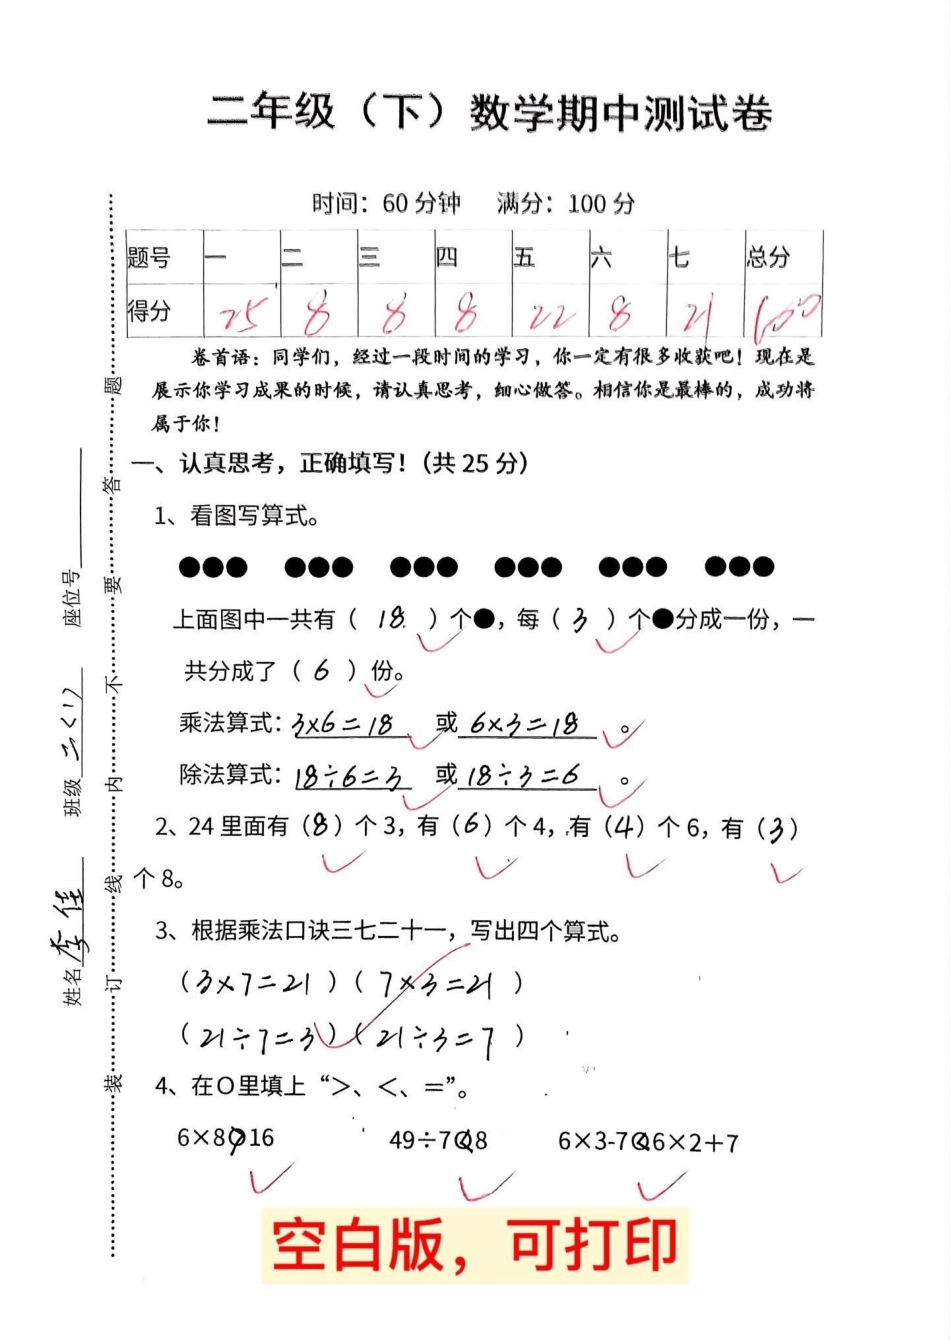 二年级（下）数学期中测试卷
时间：60 分钟 满分：100 分
题号 一 二 三 四 五 六 七 总分
得分 25 8 8 8 22 8 21 100
卷首语：同学们，经过一段时间的学习，你一定有很多收获吧！现在是
展示你学习成果的时候，请认真思考，细心做答。相信你是最棒的，成功将
属于你！
一、认真思考，正确填写！（共 25 分）
1、看图写算式。
上面图中一共有（ 18 ）个●，每（ 3 ）个●分成一份，一
共分成了（ 6 ）份。
乘法算式：3×6=18 或 6×3=18 。
除法算式：18÷6=3 或 18÷3=6 。
2、24 里面有（8）个 3，有（6）个 4，有（4）个 6，有（3）
个 8。
3、根据乘法口诀三七二十一，写出四个算式。
（3×7=21）（7×3=21）
（21÷7=3）（21÷3=7）
4、在O里填上“>、<、=”。
6×8>16 49÷7<8 6×3-7<6×2+7
空白版，可打印
姓名 李佳 班级 二(1) 座位号
装 订 线 内 不 要 答 题